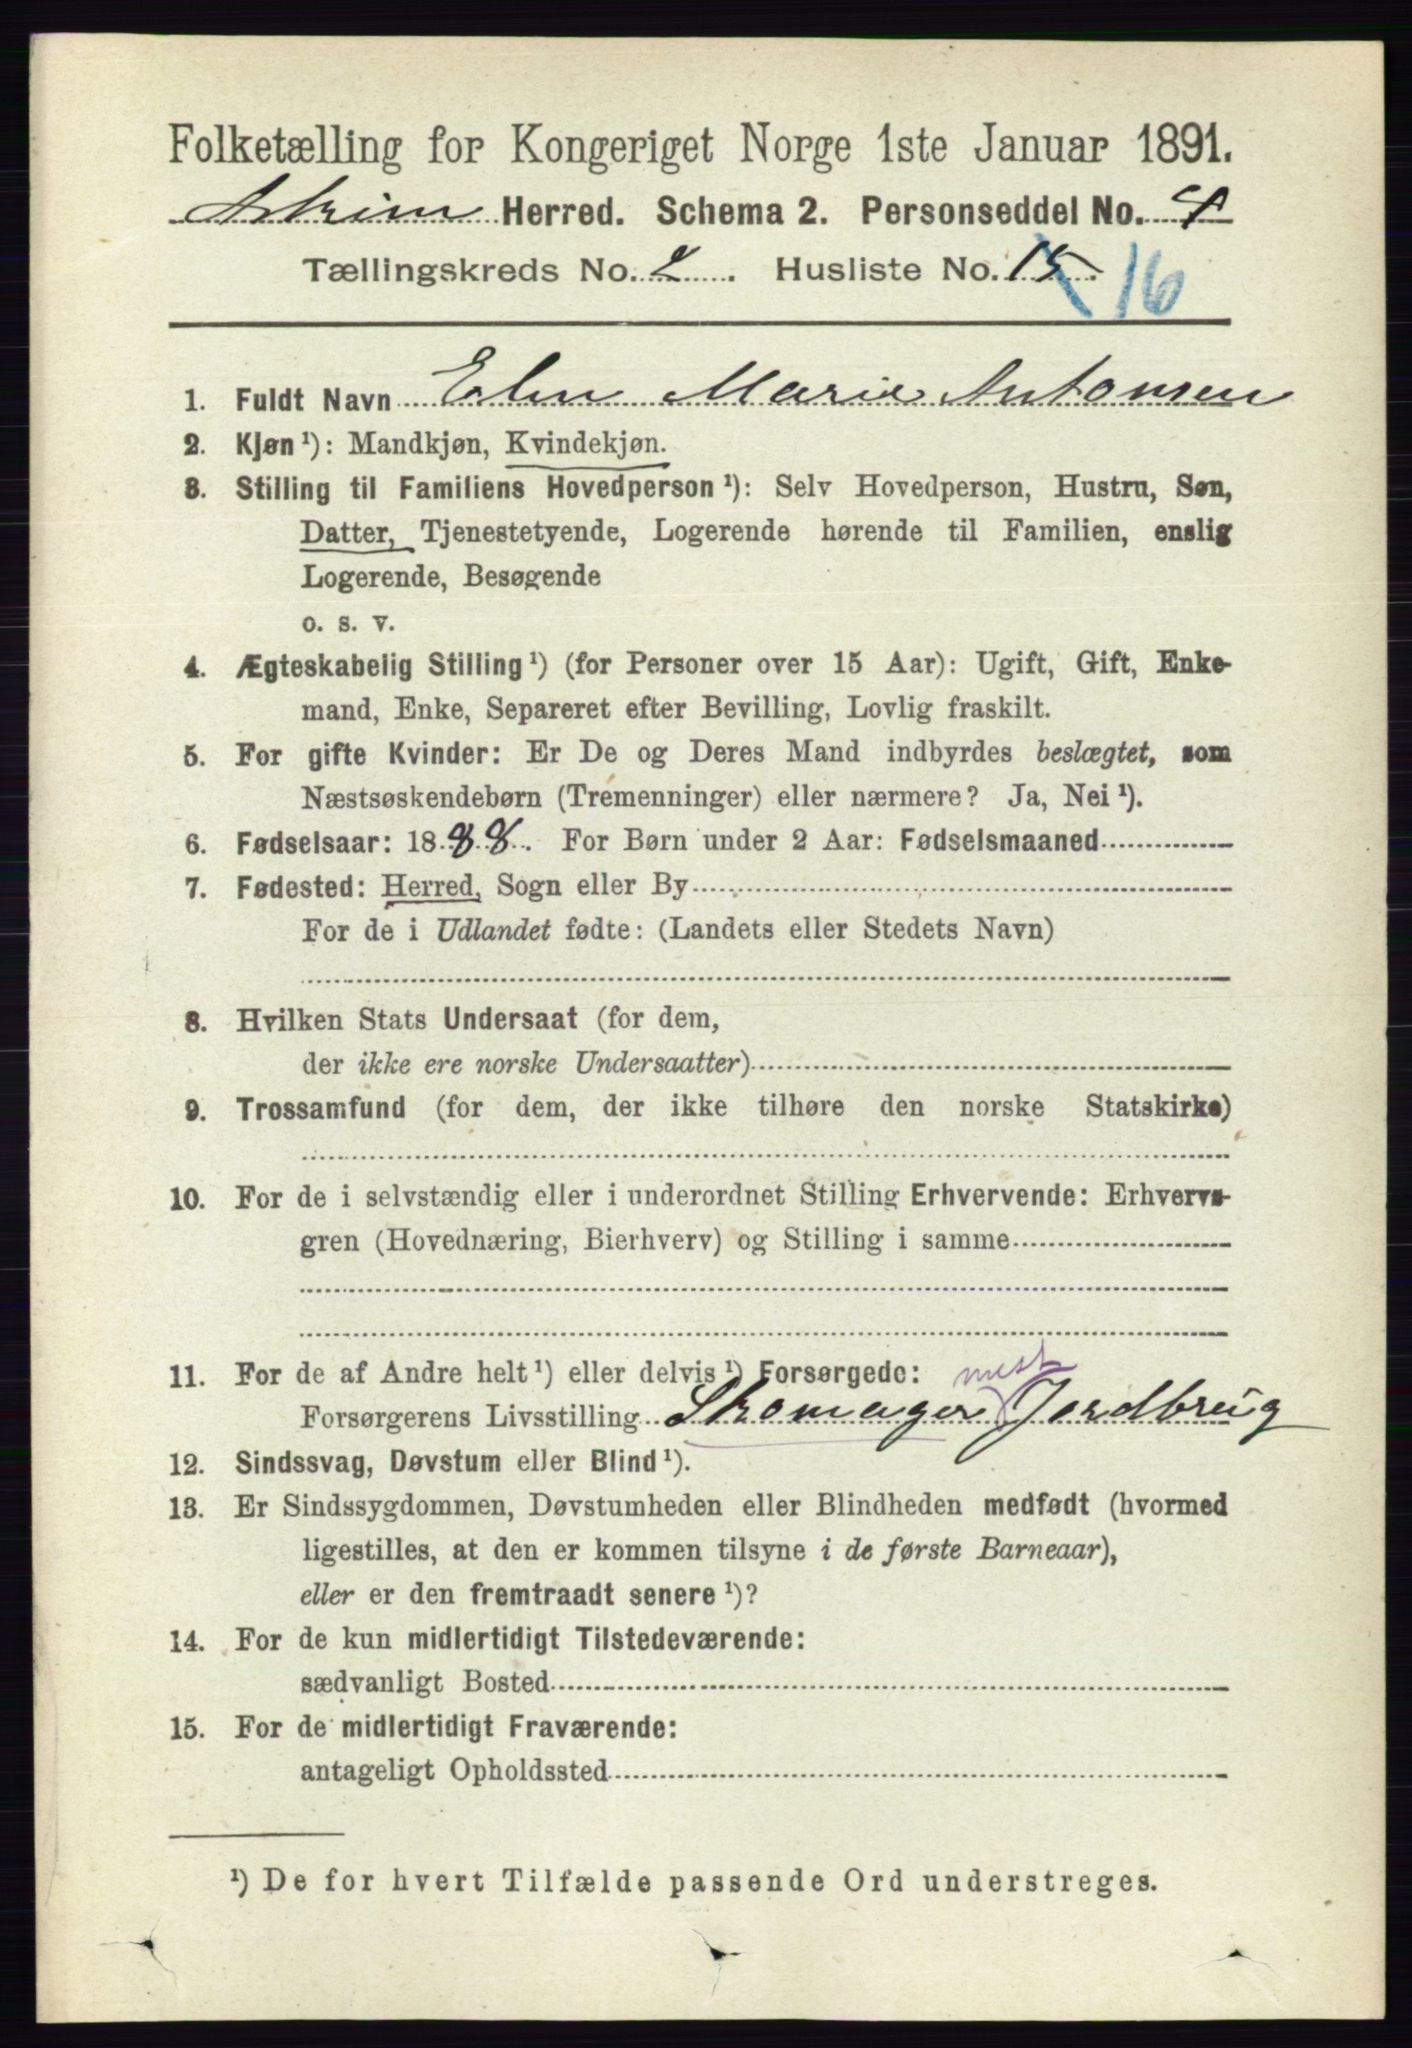 Folketælling for Kongeriget Norge 1ste Januar 1891.
Askim Herred. Schema 2. Personseddel No. 4
Tællingskreds No. 2. Husliste No. 15. 16
1. Fuldt Navn Elen Marie Antonsen
2. Kjøn ¹): Mandkjøn, Kvindekjøn.
3. Stilling til Familiens Hovedperson ¹): Selv Hovedperson, Hustru, Søn,
Datter, Tjenestetyende, Logerende hørende til Familien, enslig
Logerende, Besøgende
o. s. v.
4. Ægteskabelig Stilling ¹) (for Personer over 15 Aar): Ugift, Gift, Enke-
mand, Enke, Separeret efter Bevilling, Lovlig fraskilt.
5. For gifte Kvinder: Er De og Deres Mand indbyrdes beslægtet, som
Næstsøskendebørn (Tremenninger) eller nærmere? Ja, Nei ¹).
6. Fødselsaar: 1888. For Børn under 2 Aar: Fødselsmaaned
7. Fødested: Herred, Sogn eller By
For de i Udlandet fødte: (Landets eller Stedets Navn)
8. Hvilken Stats Undersaat (for dem,
der ikke ere norske Undersaatter)
9. Trossamfund (for dem, der ikke tilhøre den norske Statskirke)
10. For de i selvstændig eller i underordnet Stilling Erhvervende: Erhvervs-
gren (Hovednæring, Bierhverv) og Stilling i samme
11. For de af Andre helt ¹) eller delvis ¹) Forsørgede:
mest
Forsørgerens Livsstilling Skomager Jordbrug
12. Sindssvag, Døvstum eller Blind ¹).
13. Er Sindssygdommen, Døvstumheden eller Blindheden medfødt (hvormed
ligestilles, at den er kommen tilsyne i de første Barneaar),
eller er den fremtraadt senere ¹)?
14. For de kun midlertidigt Tilstedeværende:
sædvanligt Bosted
15. For de midlertidigt Fraværende:
antageligt Opholdssted
¹) De for hvert Tilfælde passende Ord understreges.